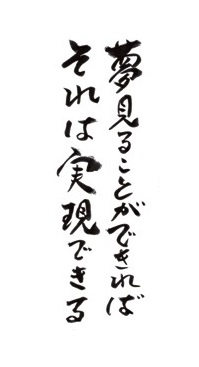 夢見ることができれば
それは実現できる